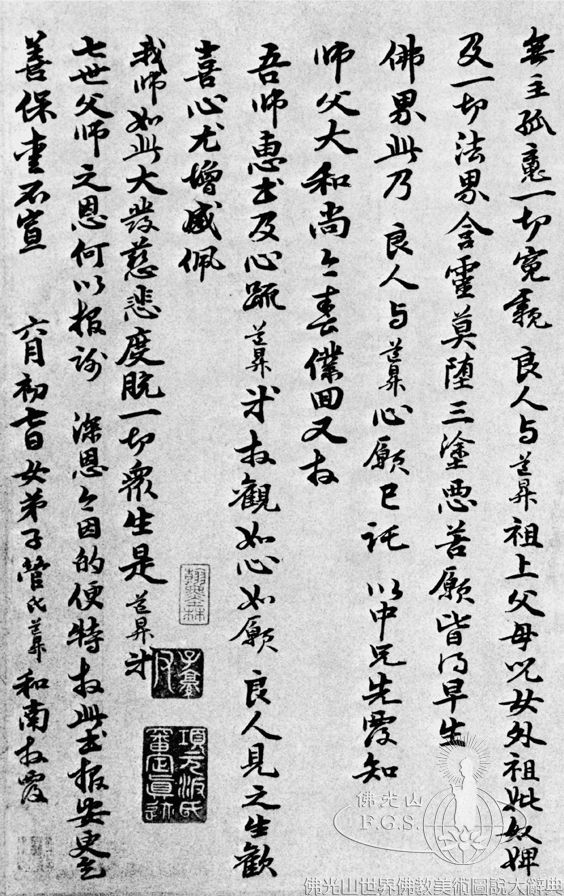 無主孤魂一切冤親 良人与道昇祖上父母兒女外祖妣奴婢
及一切法界含靈莫墮三塗惡善願皆得早生
佛界此乃 良人与道昇心願已託 以中兄先覆知
师父大和尚今专僕回又拜
吾师惠书及心疏道昇米拜觀如心如願 良人見之生歡
喜心尤增感佩
我师如此大發慈悲度脱一切衆生是道昇米
七世父师之恩何以报谢 深恩今因的便特拜此书报安
善保重不宣 六月初 日女弟子管氏道昇和南拜覆
翰墨林
子孫
項元汴氏
審定真跡
佛光山
F.G.S.
佛光山世界佛教美術圖說大辭典